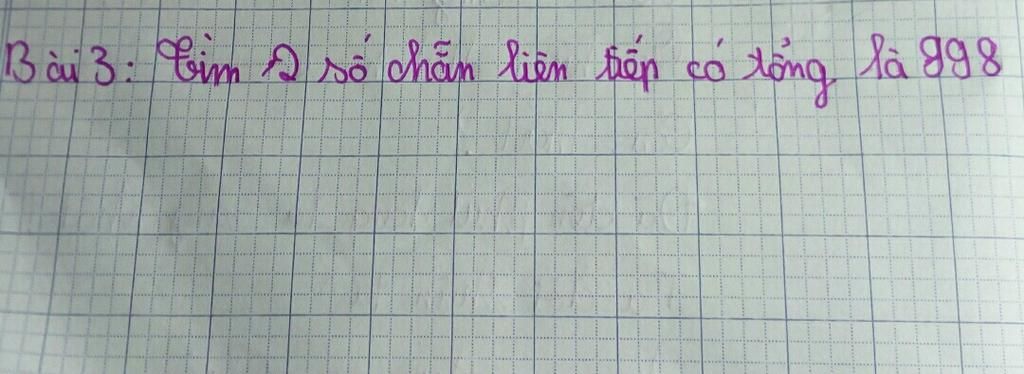 Bài 3: Tìm 2 số chẵn liên tiếp có tổng là 998